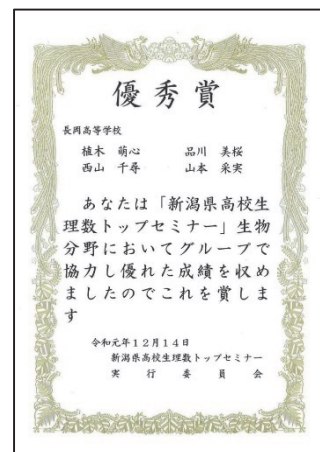 優秀賞
長岡高等学校
植木 萌心 品川 美桜
西山 千尋 山本 采実
あなたは「新潟県高校生
理数トップセミナー」生物
分野においてグループで
協力し優れた成績を収め
ましたのでこれを賞しま
す
令和元年12月14日
新潟県高校生理数トップセミナー
実行委員会